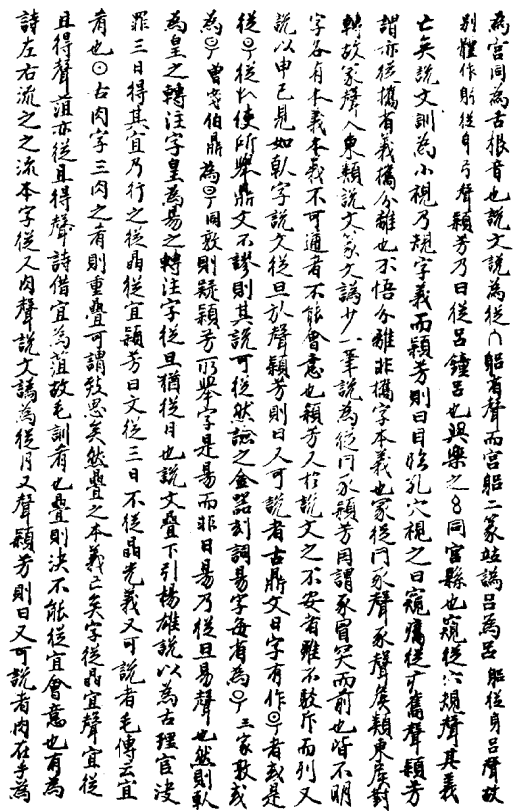 為宮同為古根音也說文說為從宀躳省聲而宮躳二篆竝譌呂為呂躳從身呂聲故
別體作躬從身弓聲穎芳乃曰從呂鐘呂也與樂之同宮縣也窺從穴規聲其義
亡矣說文訓為小視乃規字義而穎芳則曰目臨孔穴視之曰窺 從疒 聲穎芳
謂亦從 有義 分離也不悟分離非 字本義也冡從冃豕聲豕聲矦類東矦對
轉故冡聲入東類說文篆文譌少一筆說為從冂豕穎芳因謂豕冒冥而前也皆不明
字各有本義本義不可通者不能會意也穎芳又於說文之不安者雖不駮斥而列又
說以申己見如倝字說文從旦㫃聲穎芳則曰又可說者古鼎文日字有作 者或是
從 從㫃使所舉鼎文不謬則其說可從然證之金器刻詞易字每有為 三家敦或
為 曾戈伯鼎為 同敦則疑穎芳所舉字是易而非日易乃從旦易聲也然則倝
為皇之轉注字皇為易之轉注字從旦猶從日也說文疊下引楊雄說以為古理官決
罪三日得其宜乃行之從晶從宜穎芳曰文從三日不從晶光義又可說者毛傳云宜
肴也 古肉字三肉之肴則重疊可謂致思矣然疊之本義亡矣字從晶宜聲宜從
且得聲 亦從且得聲詩借宜為 故毛訓肴也疊則決不能從宜會意也有為
詩左右流之之流本字從又肉聲說文譌為從月又聲穎芳則曰又可說者肉在手為